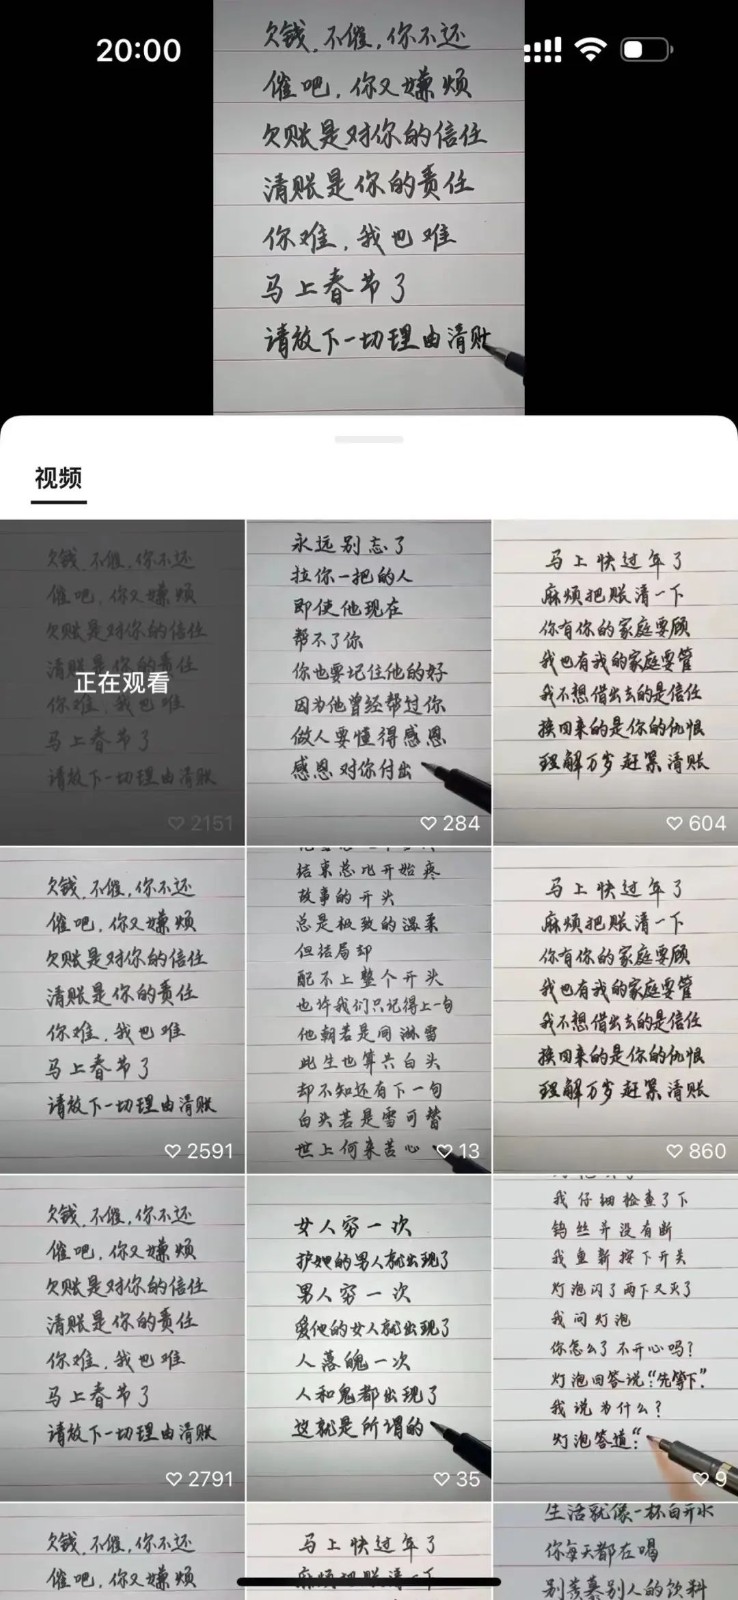 20:00
欠钱,不催,你不还
催吧,你又嫌烦
欠账是对你的信任
清账是你的责任
你难,我也难
马上春节了
请放下一切理由清账
视频
欠钱,不催,你不还
催吧,你又嫌烦
欠账是对你的信任
清账是你的责任
正在观看
你难,我也难
马上春节了
请放下一切理由清账
2151
永远别忘了
拉你一把的人
即使他现在
帮不了你
你也要记住他的好
因为他曾经帮过你
做人要懂得感恩
感恩对你付出
284
马上快过年了
麻烦把账清一下
你有你的家庭要顾
我也有我的家庭要管
我不想借出去的是信任
换回来的是你的仇恨
理解万岁赶紧清账
604
欠钱,不催,你不还
催吧,你又嫌烦
欠账是对你的信任
清账是你的责任
你难,我也难
马上春节了
请放下一切理由清账
2591
结束总比开始疼
故事的开头
总是极致的温柔
但结局却
配不上整个开头
也许我们只记得上一句
他朝若是同淋雪
此生也算共白头
却不知还有下一句
白头若是雪可替
世上何来苦心
13
马上快过年了
麻烦把账清一下
你有你的家庭要顾
我也有我的家庭要管
我不想借出去的是信任
换回来的是你的仇恨
理解万岁赶紧清账
860
欠钱,不催,你不还
催吧,你又嫌烦
欠账是对你的信任
清账是你的责任
你难,我也难
马上春节了
请放下一切理由清账
2791
女人穷一次
护她的男人都出现了
男人穷一次
爱他的女人都出现了
人落魄一次
人和鬼都出现了
这就是所谓的
35
我仔细检查了下
钨丝并没有断
我重新按下开关
灯泡闪了两下又灭了
我问灯泡
你怎么了不开心吗?
灯泡回答说:“先等下”
我说为什么?
灯泡答道:“
9
欠钱,不催,你不还
催吧,你又嫌烦
马上快过年了
麻烦把账清一下
生活就像一杯白开水
你每天都在喝
别羡慕别人的饮料